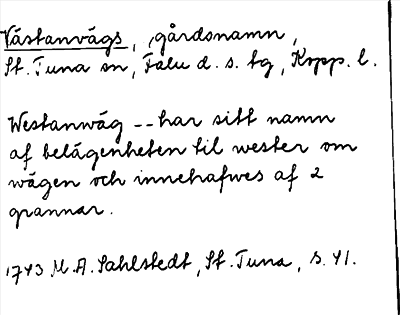 Västanvägs, gårdsnamn,
St. Tuna sn, Falu d. s. tg, Kopp. l.
Westanwäg -- har sitt namn
af belägenheten til wester om
wägen och innehafwes af 2
grannar.
1743 M. A. Sahlstedt, St. Tuna, s. 41.